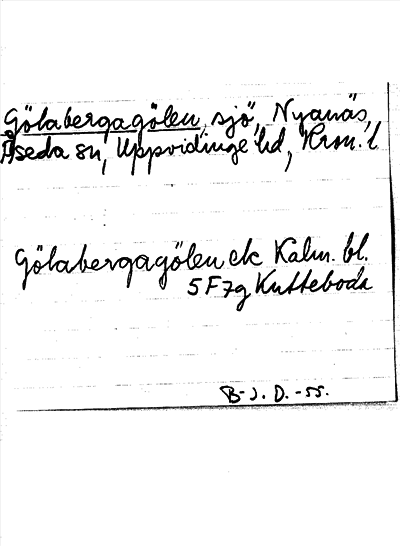 Gölabergagölen, sjö, Nyanäs,
Åseda sn, Uppvidinge hd, Kron. l
Gölabergagölen ek Kalm. bl.
5 F 7g Kutteboda
B-J. D. -55.